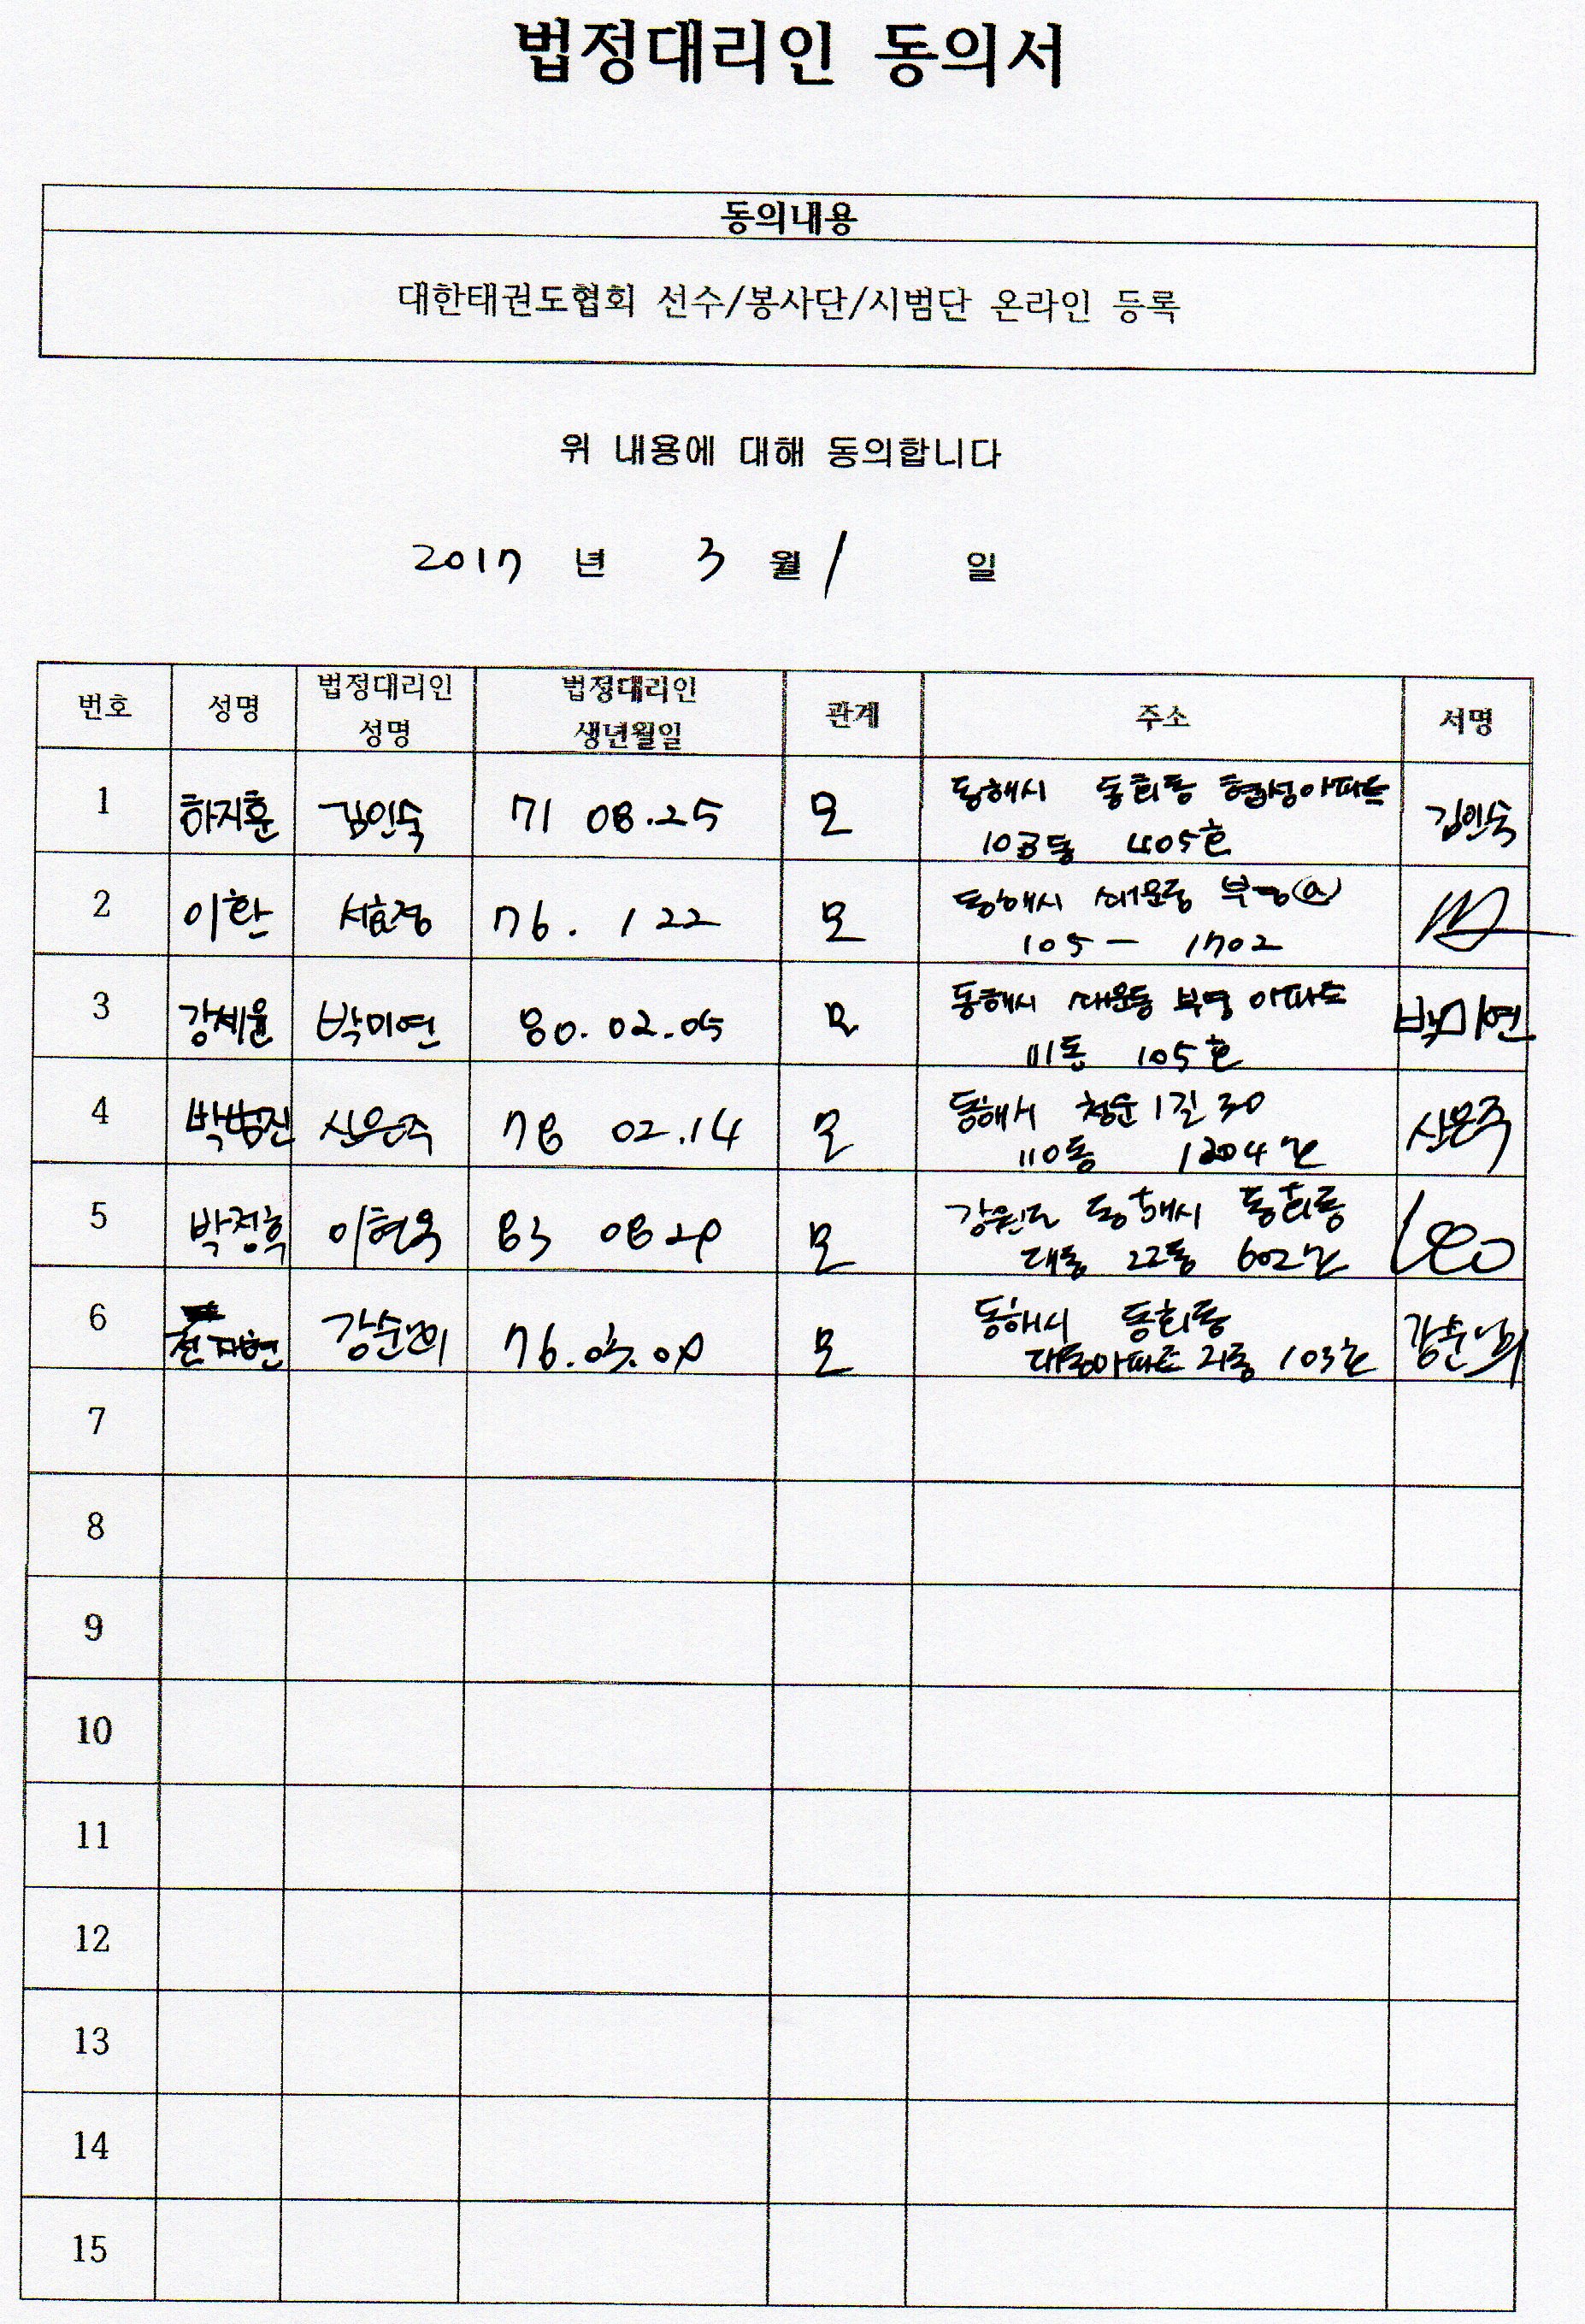 법정대리인 동의서
동의내용
대한태권도협회 선수/봉사단/시범단 온라인 등록
위 내용에 대해 동의합니다
2017 년 3 월 1 일
번호 성명 법정대리인 성명 법정대리인 생년월일 관계 주소 서명
1 하지훈 김인숙 71 08.25 모 동해시 동회동 현성아파트 김인숙
동 405호
2 이한 서효정 76. 1 22 모 동해시 부영@
105 - 1702
3 강세윤 박미연 80. 02.05 모 동해시 부영 아파트 박미연
111동 105호
4 신은주 78 02.14 모 동해시 청운1길 30 신은주
110동 1204호
5 박정혁 이현옥 83 08 모 강원도 동해시 동회동
대동 22동 602호
6 모 동해시 동회동
대동아파트 21동 103호
7
8
9
10
11
12
13
14
15